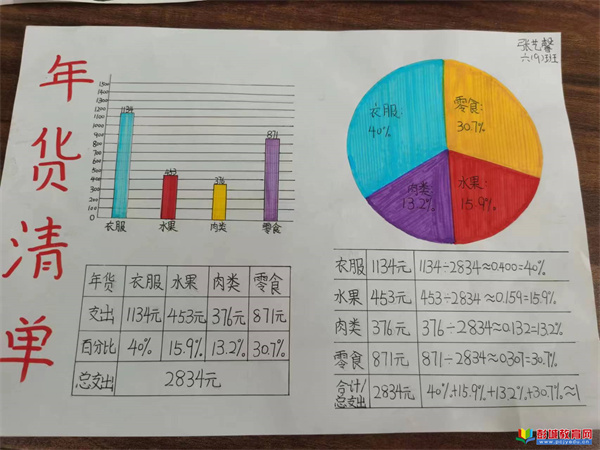 年货清单
张艺馨
六(9)班
1500
1400
1300
1200
1100
1000
900
800
700
600
500
400
300
200
100
0
1134
453
376
871
衣服 水果 肉类 零食
衣服:
40%
零食:
30.7%
肉类:
13.2%
水果:
15.9%
年货 衣服 水果 肉类 零食
支出 1134元 453元 376元 871元
百分比 40% 15.9% 13.2% 30.7%
总支出 2834元
衣服 1134元 1134÷2834≈0.400=40%
水果 453元 453÷2834≈0.159=15.9%
肉类 376元 376÷2834≈0.132=13.2%
零食 871元 871÷2834≈0.307=30.7%
合计/总支出 2834元 40%+15.9%+13.2%+30.7%≈1
彭城教育网
www.pcjyedu.cn